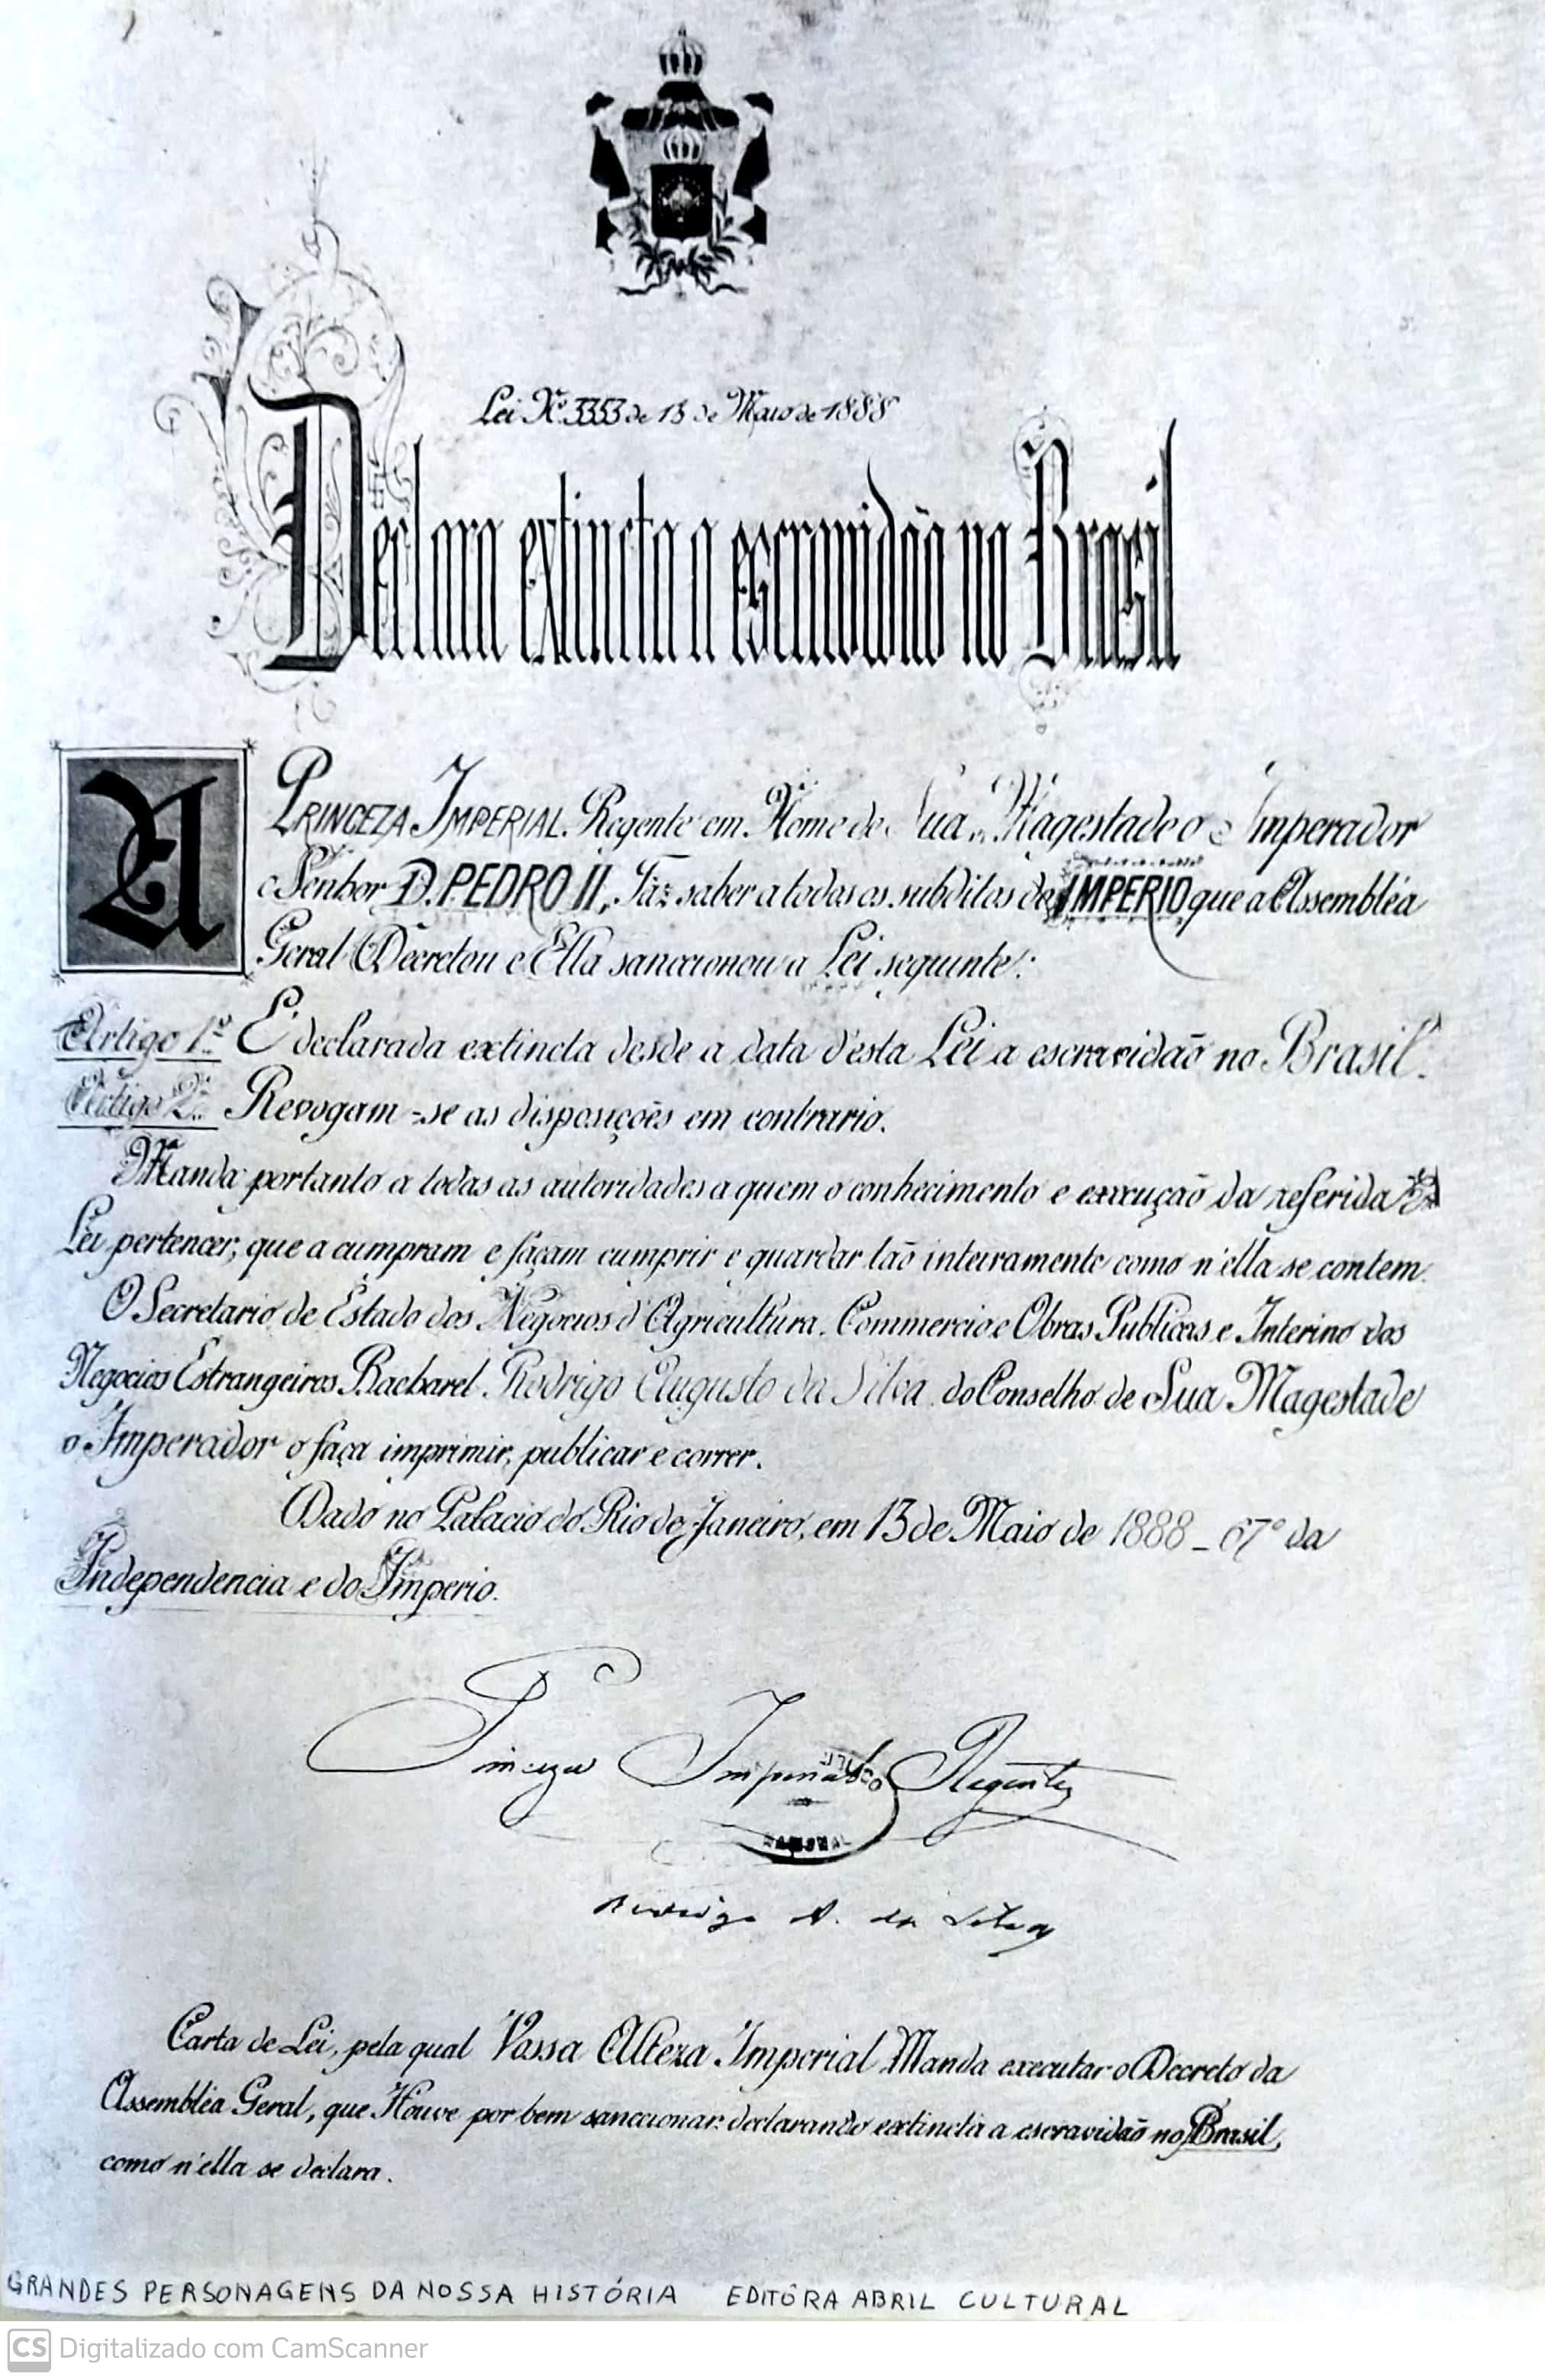 Lei Nº 3353 de 13 de Maio de 1888
Declara extincta a escravidão no Brasil
A PRINCEZA IMPERIAL. Regente em Nome de Sua Magestade o Imperador
o Senhor D. PEDRO II, Faz saber a todos os subditos do IMPERIO que a Assembléa
Geral Decretou e Ella sanccionou a Lei seguinte:
Artigo 1º É declarada extincta desde a data d'esta Lei a escravidão no Brasil.
Artigo 2º Revogam-se as disposições em contrario.
Manda portanto a todas as autoridades a quem o conhecimento e execução da referida
Lei pertencer, que a cumpram e façam cumprir e guardar tão inteiramente como n'ella se contem.
O Secretario de Estado dos Negocios d'Agricultura. Commercio e Obras Publicas e Interino dos
Negocios Estrangeiros Bacharel Rodrigo Augusto da Silva do Conselho de Sua Magestade
o Imperador o faça imprimir, publicar e correr.
Dado no Palacio do Rio de Janeiro, em 13 de Maio de 1888 - 67º da
Independencia e do Imperio.
Princeza Imperial Regente
Rodrigo A. da Silva
Carta de Lei, pela qual Vossa Alteza Imperial Manda executar o Decreto da
Assembléa Geral, que Houve por bem sanccionar declarando extincta a escravidão no Brasil,
como n'ella se declara.
GRANDES PERSONAGENS DA NOSSA HISTÓRIA EDITÔRA ABRIL CULTURAL
CS Digitalizado com CamScanner